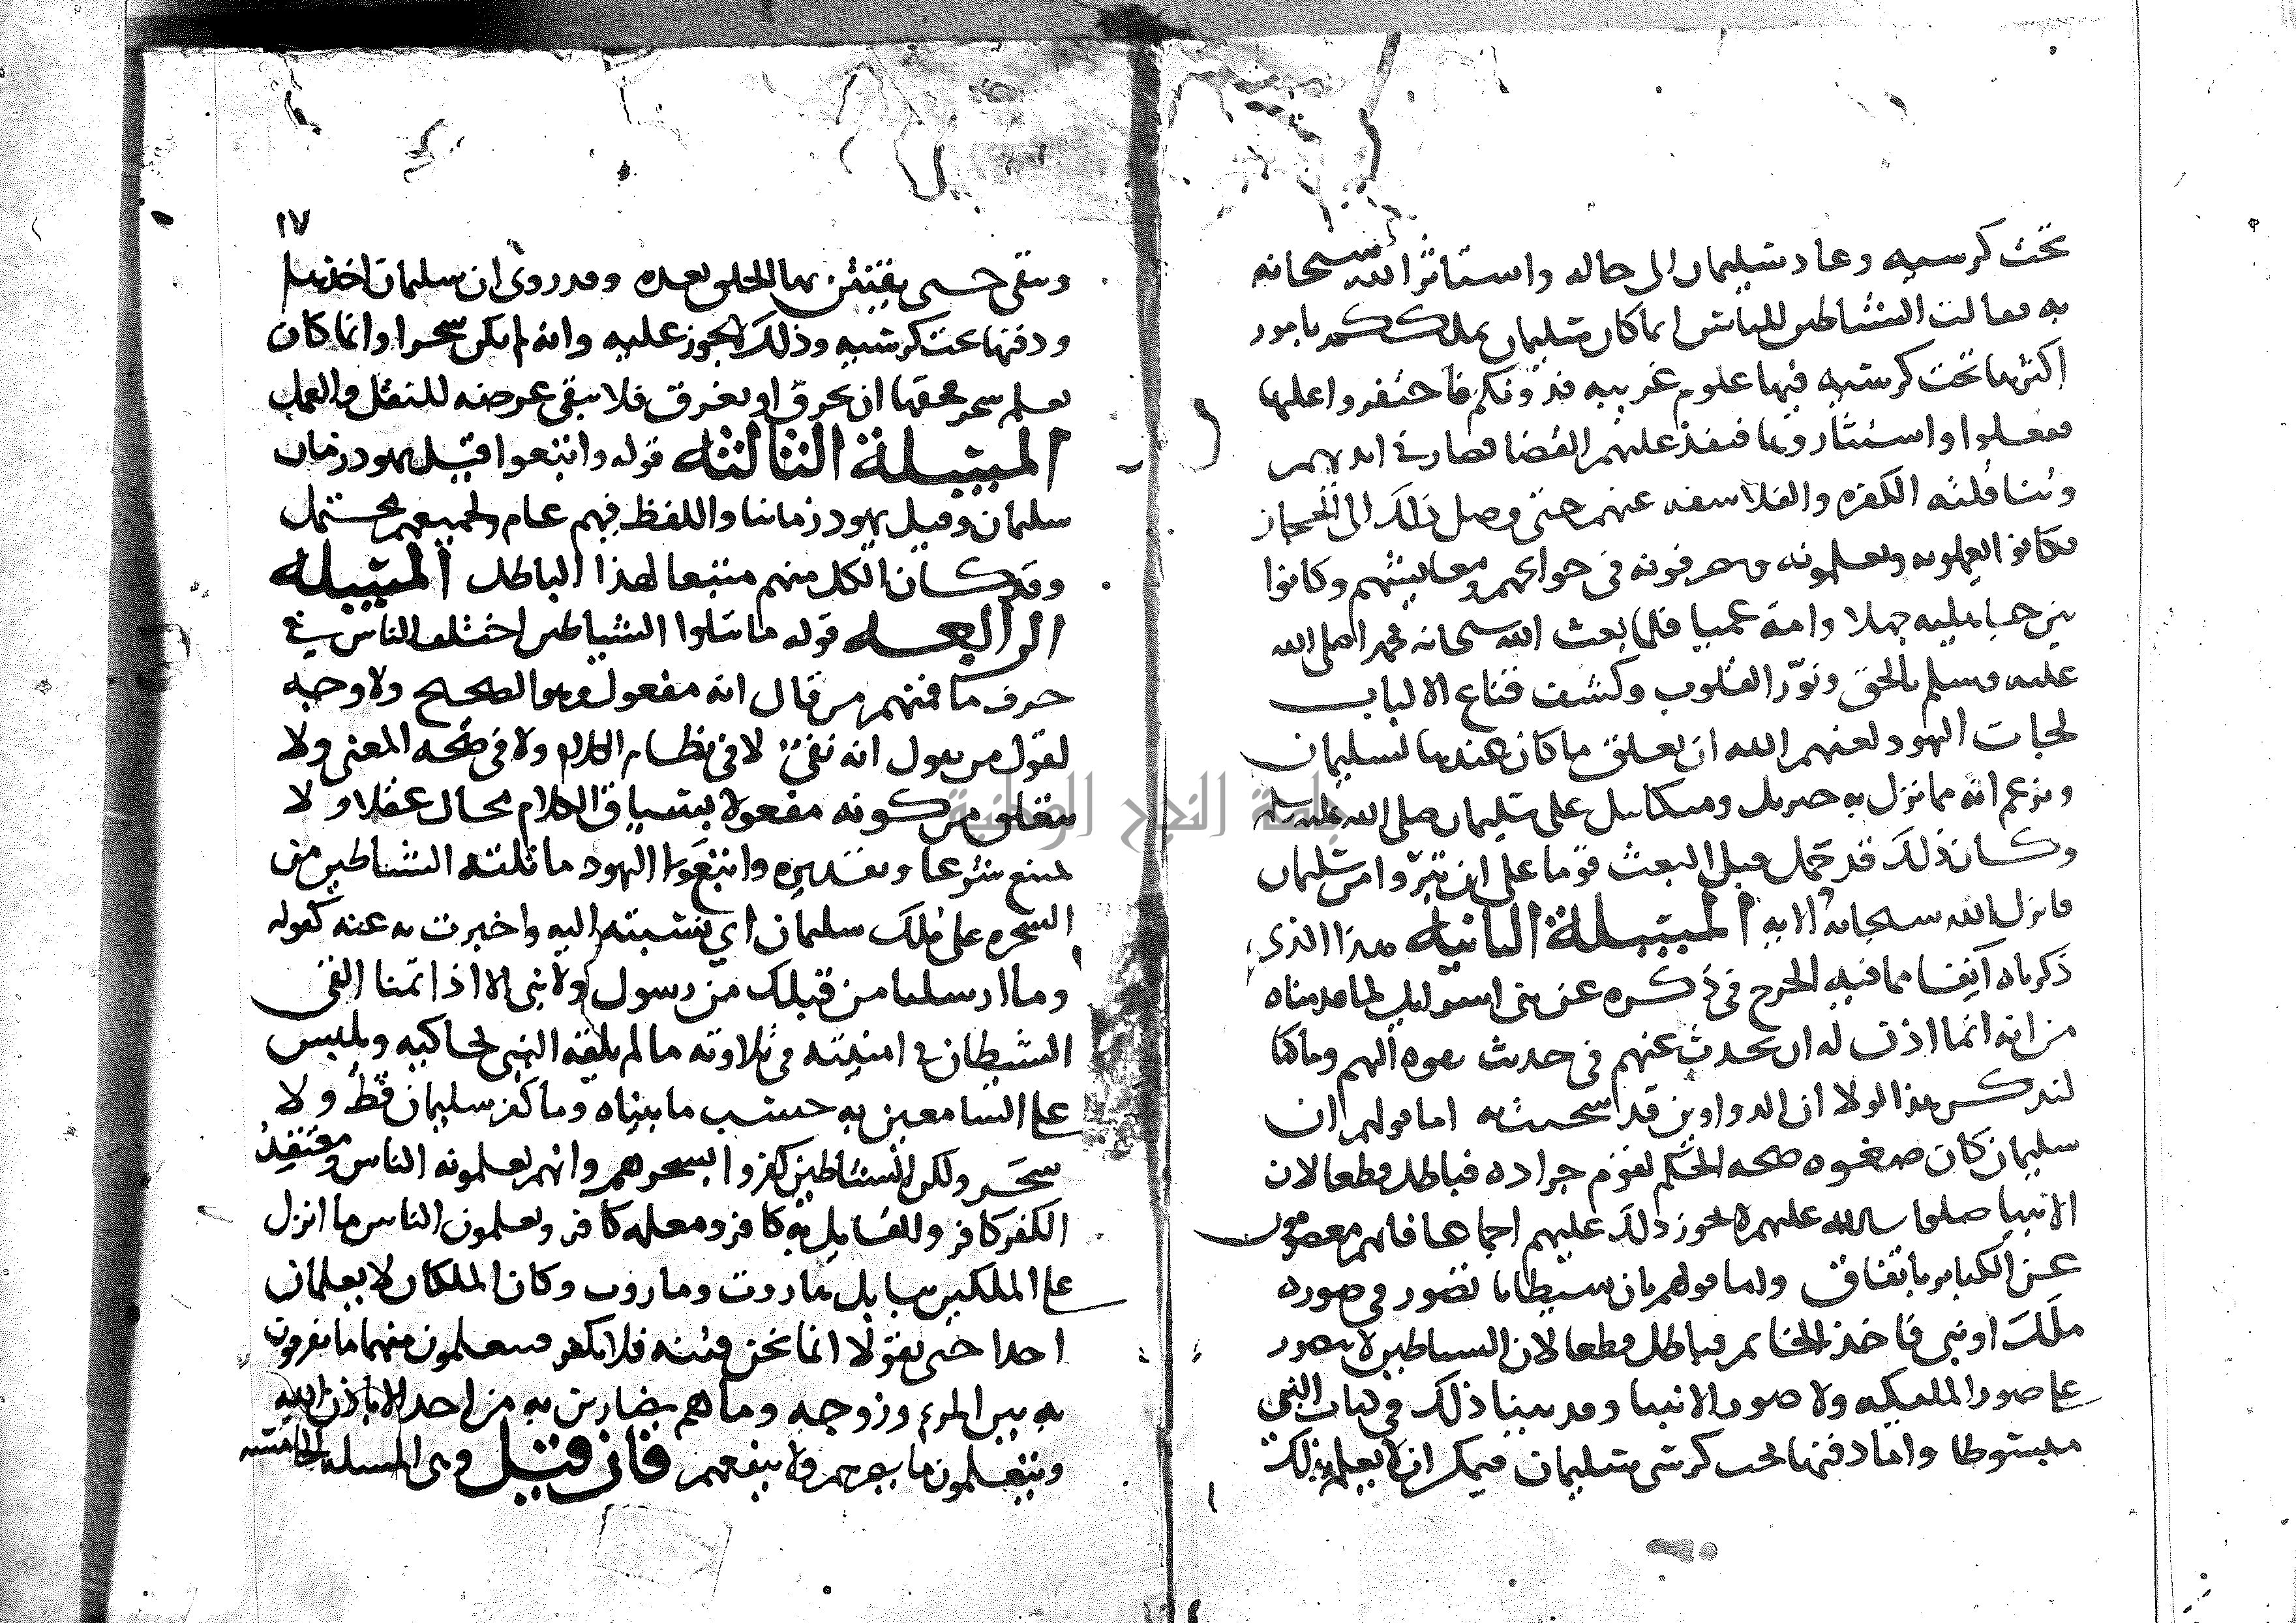 تحت كرسيه وعاد سليمان الى حاله واستاثر الله سبحانه
به فقالت الشياطين للناس انما كان سليمان يملككم بامور
اكثرها تحت كرسيه فيها علوم غريبه فدونكم فاحتفروا عليها
ففعلوا واستثاروها فنفذ عليهم القضا فصار في ايديهم
وتناقلته الكفره والفلاسفه عنهم حتى وصل ذلك الى الحجاز
فكانو يعلمونه ويصرفونه في حوائجهم ومعايشهم وكانوا
بين جاهليه جهلا وامة عميا فلما بعث الله سبحانه محمدا صلى الله
عليه وسلم بالحق ونوّر القلوب وكشف قناع الالباب
لجات اليهود لعنهم الله ان تعلق ما كان عندها لسليمان
وتزعم انه مما نزل به جبريل وميكاييل على سليمان صلى الله عليه وسلم
وكان ذلك قد حمل قبل البعث قوما على ان تبروا من سليمان
فانزل الله سبحانه الايه المسيلة الثانيه هذا الذي
ذكرناه آنفا مما فيه الحرج في ذكره عن بني اسرائيل لما قدمناه
من انه انما اذن له ان يحدث عنهم في حديث يعود اليهم وما كنا
لنذكر هذا لولا ان الدواوين قد شحنت به اما قولهم ان
سليمان كان صغوه صحه الحكم لقوم جراده فباطل قطعا لان
الانبيا صلوات الله عليهم لا يجوز ذلك عليهم اجماعا فانهم معصومون
عن الكباير باتفاق واما قولهم بان شيطانا تصور في صورة
ملك او نبي فاخذ الخاتم فباطل قطعا لان الشياطين لا تتصور
على صور الملئيكه ولا صور الانبيا وقد بينا ذلك في كتاب النبي
مبسوطا واما دفنها تحت كرسي سليمان فيمكن ان لا يعلم بذلك
١٧
وتبقى حتى يفتتن بها الخلق بعده وقد روي ان سليمان اخذها
ودفنها تحت كرسيه وذلك لا يجوز عليه وانه لم يكن سحرا وانما كان
يعلم سحر فحقها ان تحرق او تغرق فلا تبقى عرضه للنقل والعمل
المسيلة الثالثه قوله واتبعوا قيل يهود زمان
سليمان وقيل يهود زماننا واللفظ فيهم عام ولجميعهم محتمل
وقد كان الكل منهم متبعا لهذا الباطل المسيله
الرابعه قوله ما تتلوا الشياطين اختلف الناس في
حرف ما فمنهم من قال انه مفعول وهو الصحيح ولا وجه
لقول من يقول انه نفي لا في نظام الكلام ولا في صحه المعنى ولا
يتعلق من كونه مفعولا بسياق الكلام محال عقلا ولا
ممتنع شرعا وتقديره واتبعوا اليهود ما تلته الشياطين من
السحر على ملك سليمان اي نسبته اليه واخبرت به عنه كقوله
وما ارسلنا من قبلك من رسول ولا نبي الا اذا تمنا القى
الشيطان في امنيته في تلاوته ما لم يلقه النبي لحاكيه ويلبس
على السامعين به حسب ما بيناه وما كفر سليمان قط ولا
سحر ولكن الشياطين كفروا بسحرهم وانهم يعلمونه الناس ومعتقد
الكفر كافر والقايل به كافر ومعلمه كافر ويعلمون الناس ما انزل
على الملكين ببابل هاروت وماروت وكان الملكان لا يعلمان
احدا حتى يقولا انما نحن فتنه فلا تكفر فيتعلمون منهما ما يفرقون
به بين المرء وزوجه وما هم بضارين به من احد الا باذن الله
ويتعلمون ما يضرهم ولا ينفعهم فان قيل وهي المسيله الخامسه
جامعة النجاح الوطنية